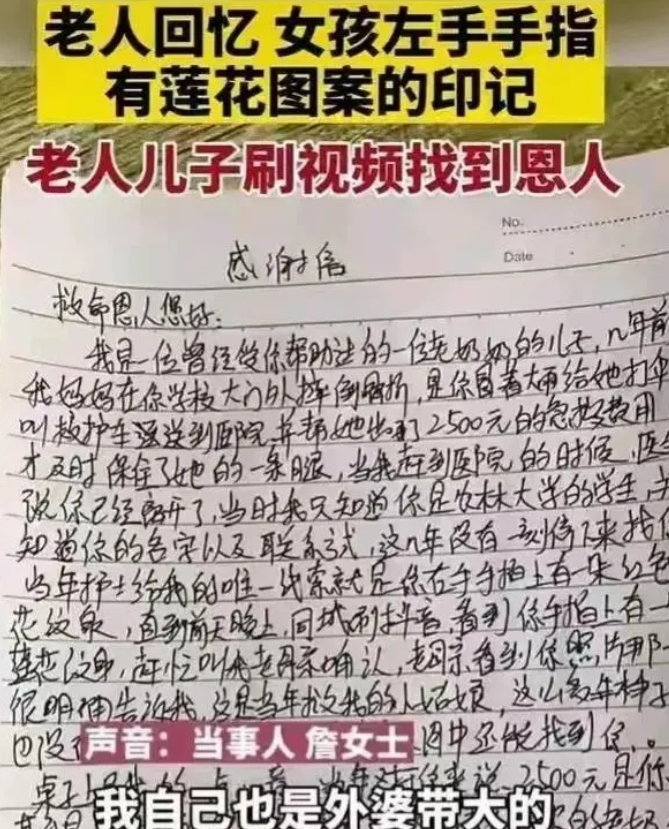 老人回忆 女孩左手手指
有莲花图案的印记
老人儿子刷视频找到恩人
No.
Date
感谢信
救命恩人您好:
我是一位曾经受你帮助过的一位老奶奶的儿子,几年前
我妈妈在你学校大门外摔倒骨折,是你冒着大雨给她打伞
叫救护车护送到医院并帮她出了2500元的急救费用
才及时保住了她的一条腿,当我赶到医院的时候,医
说你已经离开了,当时我只知道你是农林大学的学生,
知道你的名字以及联系方式,这几年没有一刻停下来找
当年护士给我的唯一线索就是你右手手指上有一朵红色
花纹身,直到前天晚上,同城刷抖音,看到你手指上有一
莲花纹身,赶忙叫我老母亲确认,老母亲看到你照片
很明确告诉我,这是当年救我的小姑娘,这么多年
声音:当事人 詹女士
还能找到你
2500元是你
我自己也是外婆带大的